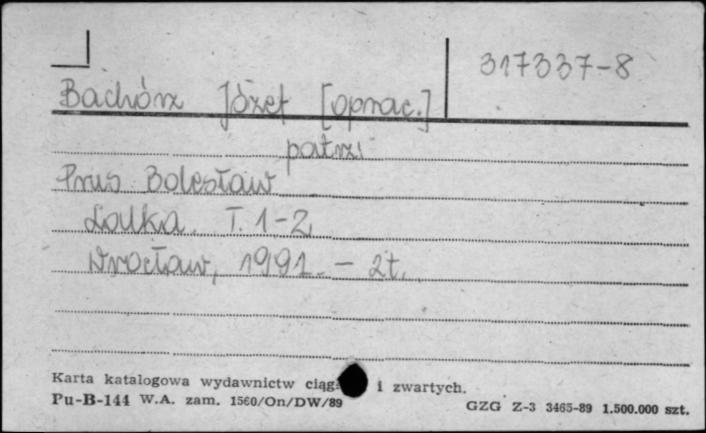 317337-8
Bachórz Józef [oprac.]
patrz
Prus Bolesław
Lalka. T. 1-2.
Wrocław, 1991. - 2t.
Karta katalogowa wydawnictw ciąg i zwartych.
Pu-B-144 W.A. zam. 1560/On/DW/89
GZG Z-3 3465-89 1.500.000 szt.